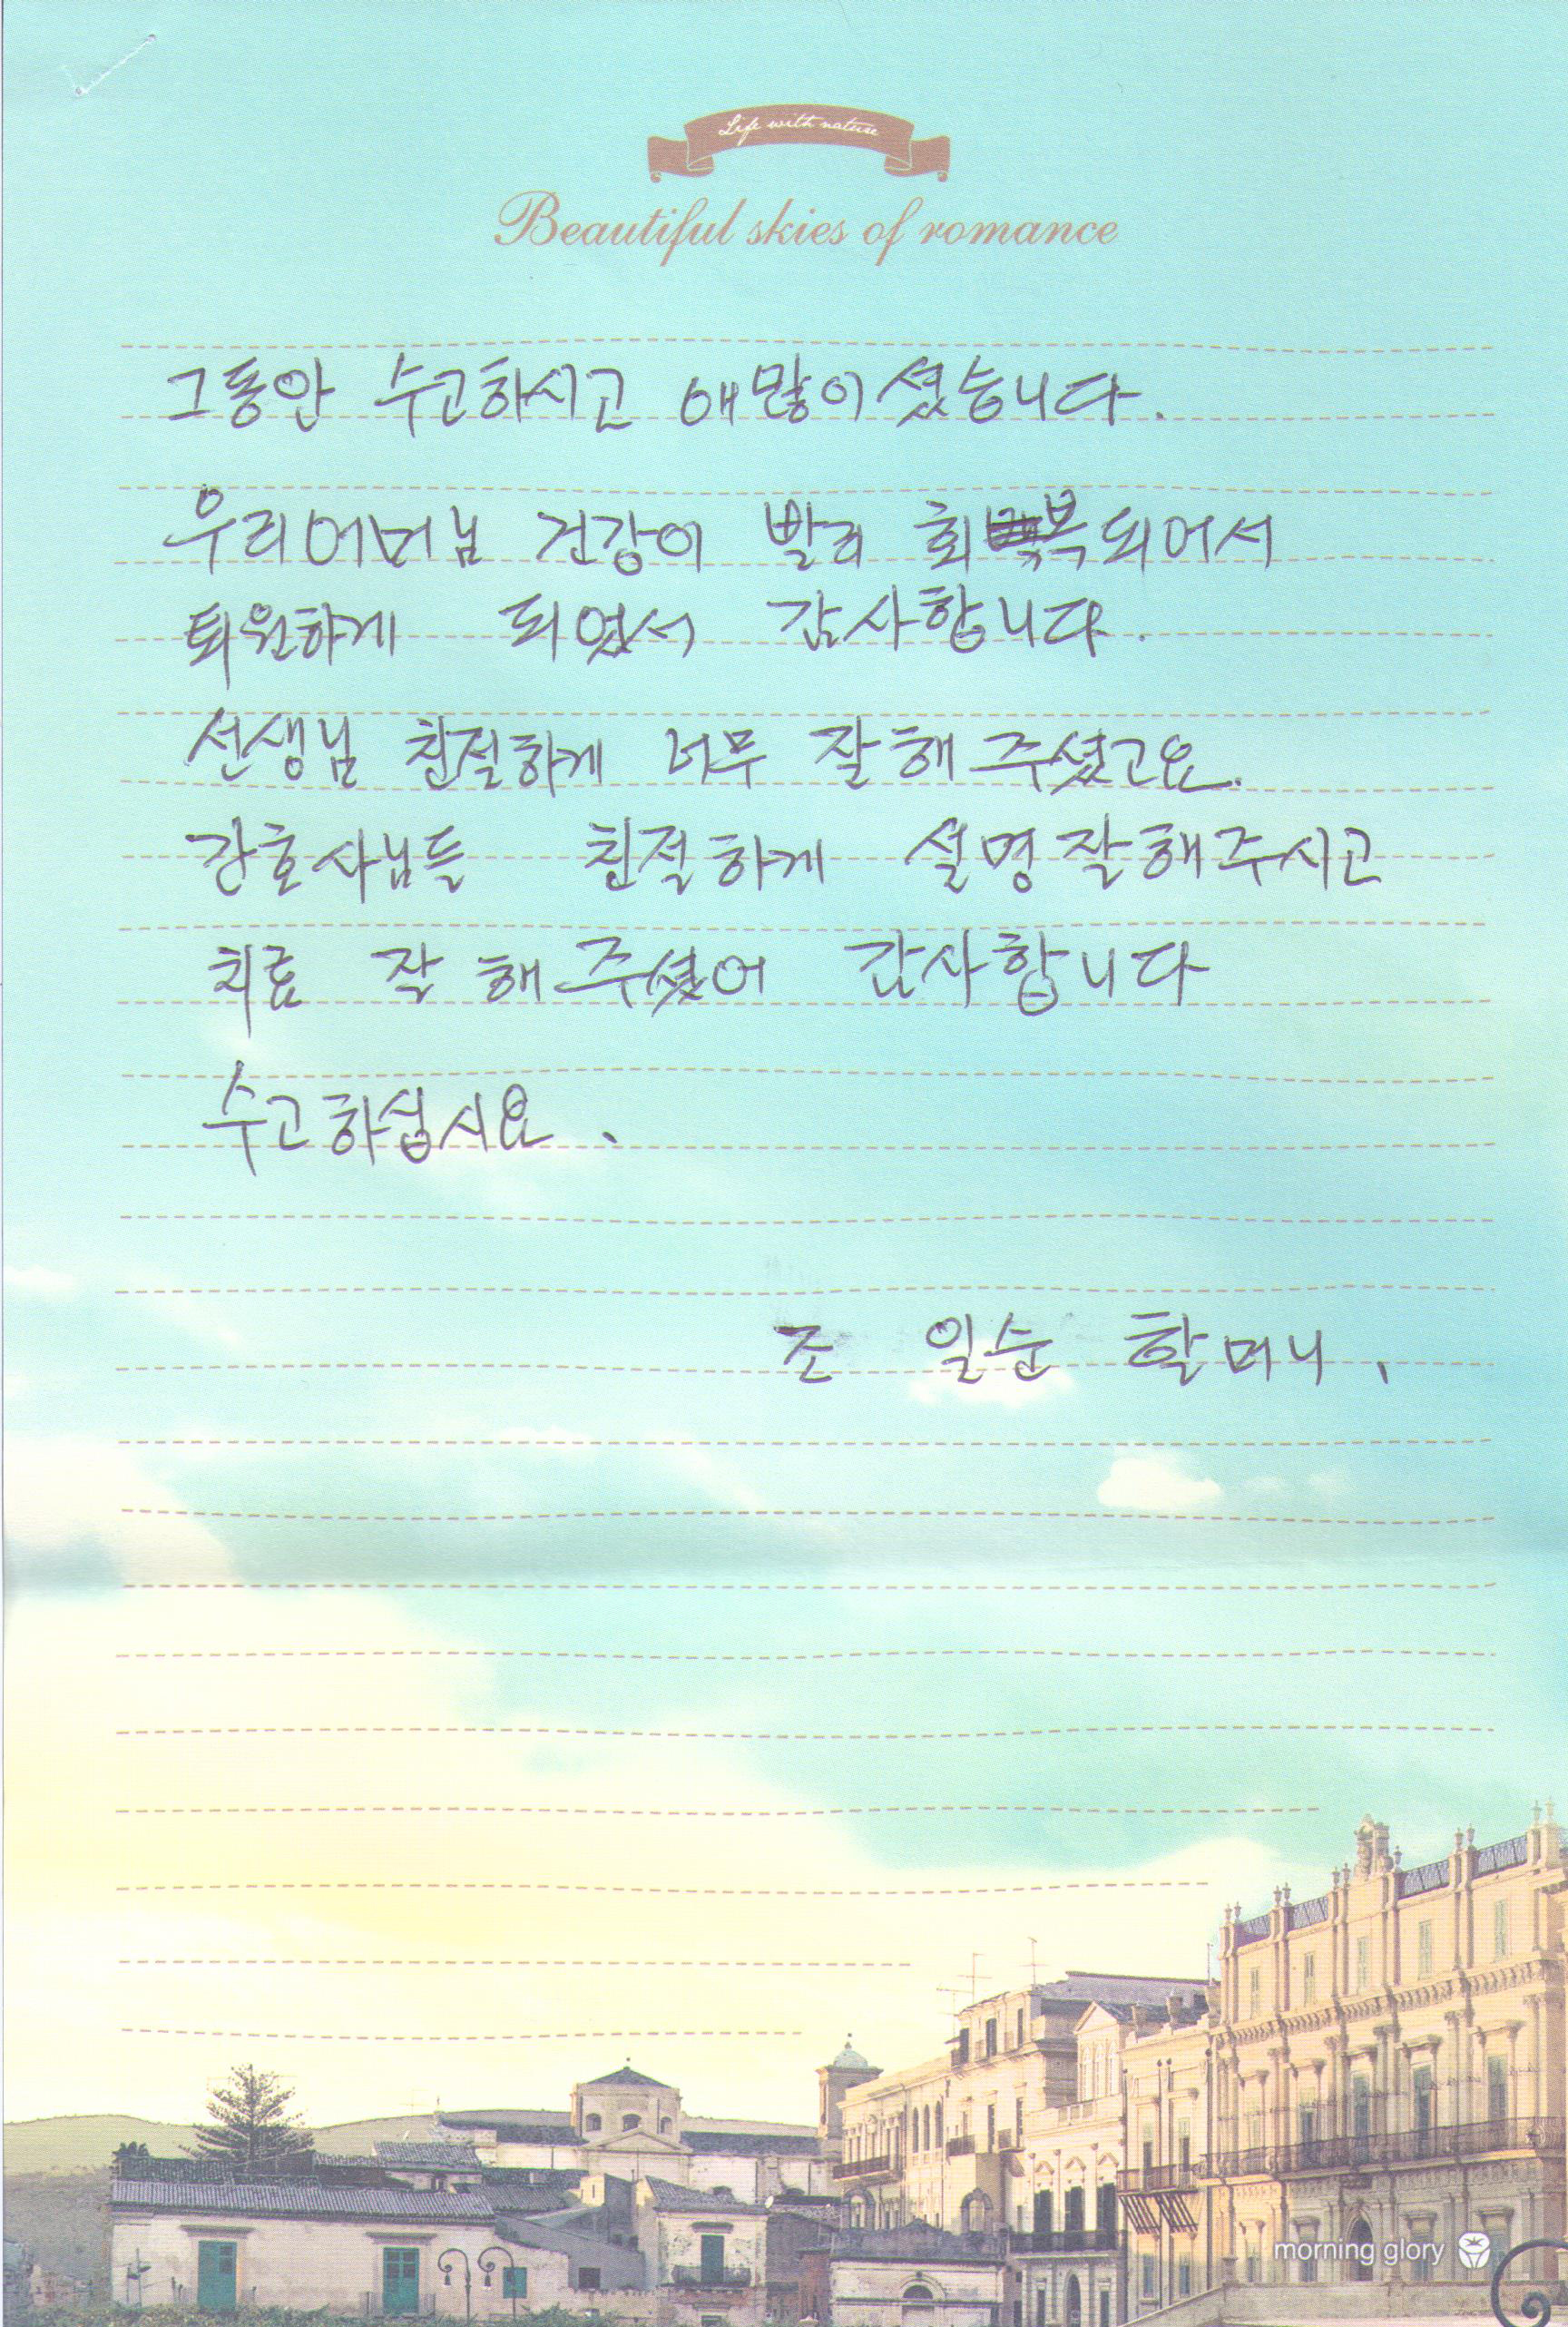 Life with nature
Beautiful skies of romance
그동안 수고하시고 애많이 셨습니다.
우리어머님 건강이 빨리 회복되어서
퇴원하게 되었서 감사합니다.
선생님 친절하게 너무 잘해 주셨고요.
간호사님들 친절하게 설명잘해주시고
치료 잘 해주셨어 감사합니다
수고하십시요.
조 일순 할머니.
morning glory